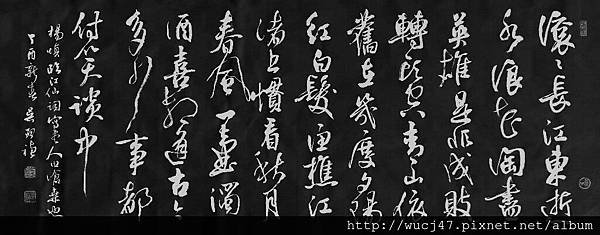 滾〻長江東逝
水浪花淘盡
英雄是非成敗
轉頭空青山依
舊在幾度夕陽
紅白髮漁樵江
渚上慣看秋月
春風一壺濁
酒喜相逢古今
多少事都
付笑談中
楊慎臨江仙詞
丁酉新春吳啟禎
http://wucj47.pixnet.net/album